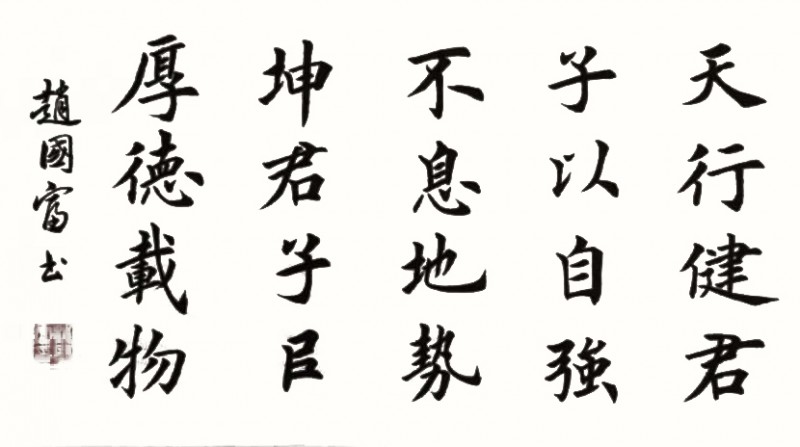 天行健君
子以自強
不息地勢
坤君子㠯
厚德載物
趙國富书